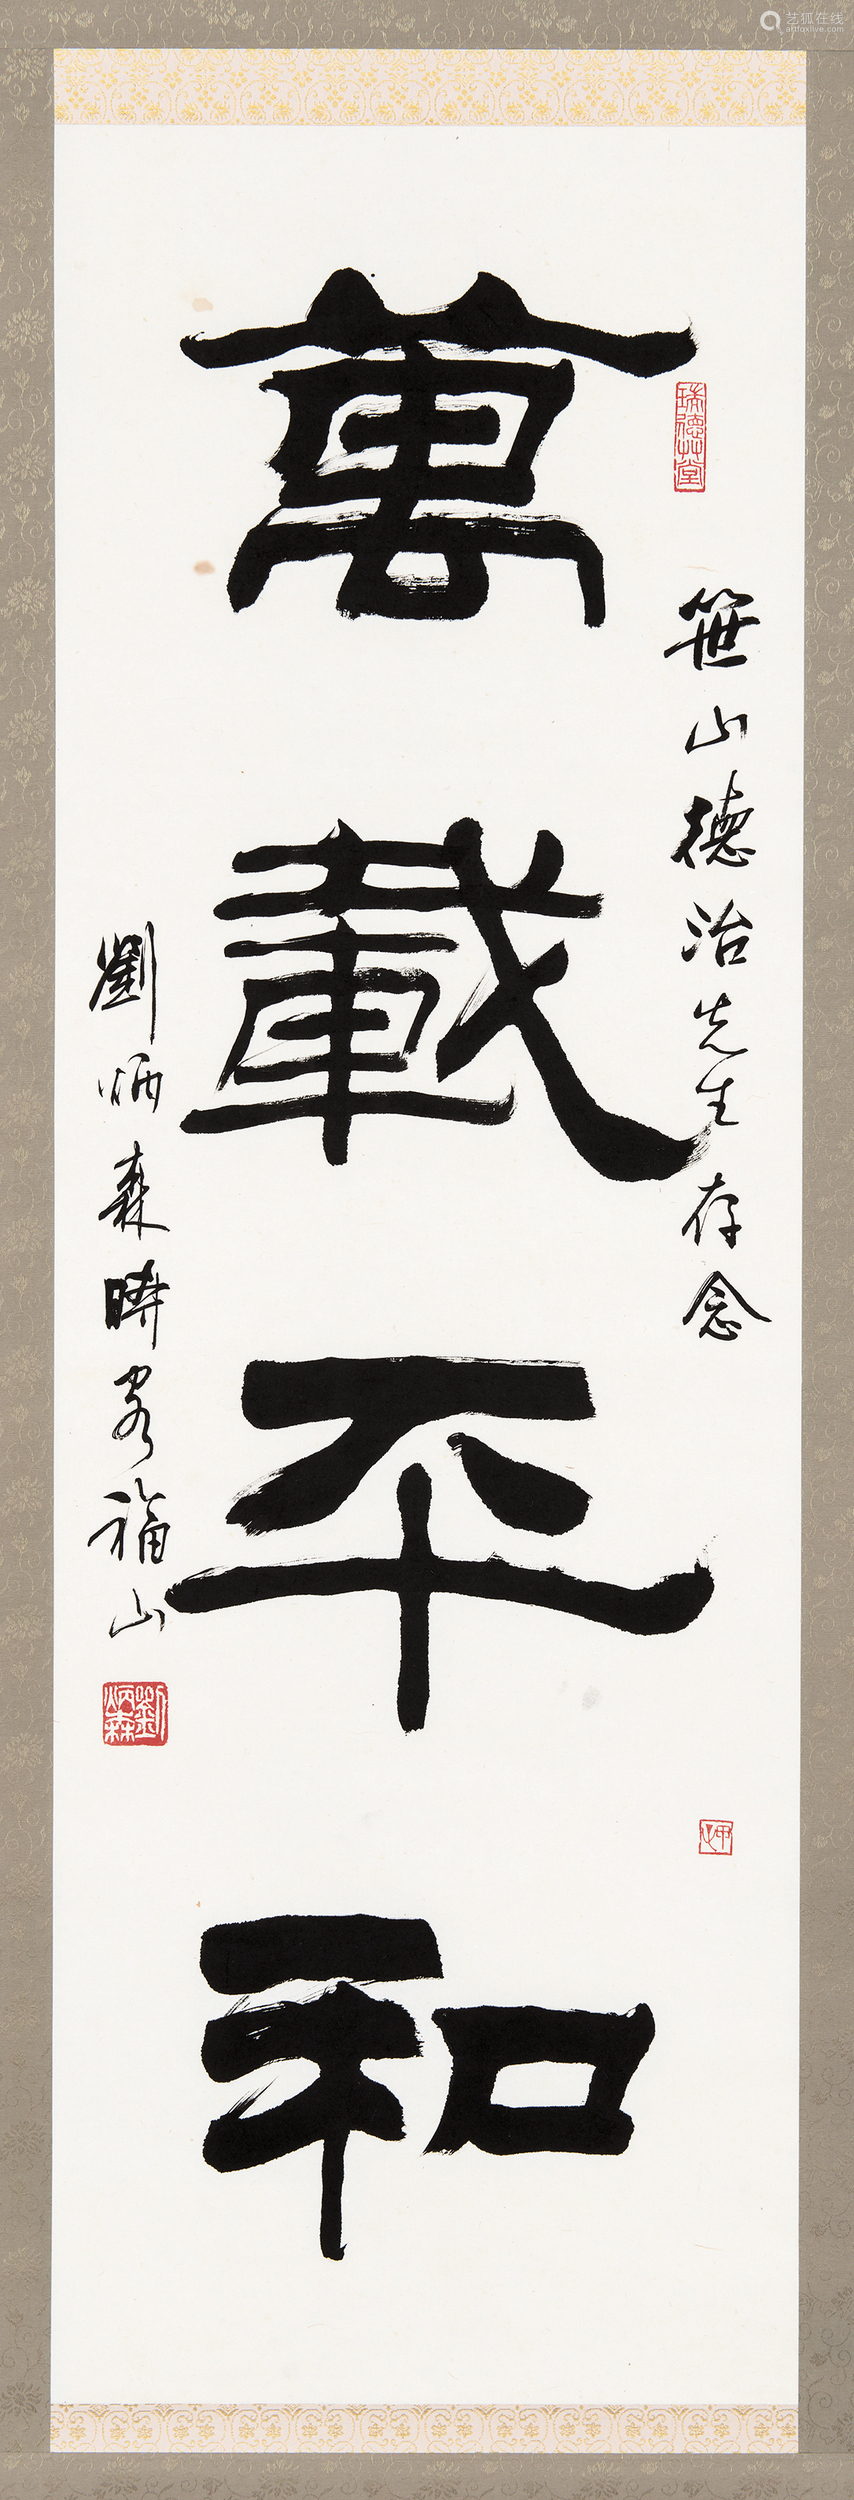 艺狐在线
artfoxlive.com
萬載平和
瑞德草堂
笹山德治先生存念
劉炳森時客福山
劉炳森